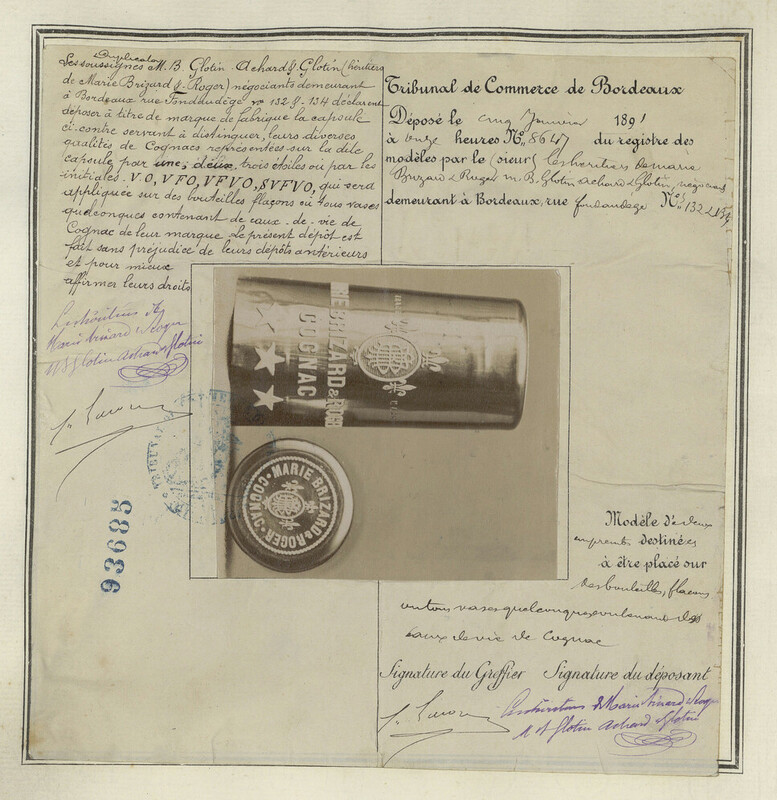 duplicata
Les soussignés M. B. Glotin Achard & Glotin (héritiers
de Marie Brizard & Roger) négociants demeurant
à Bordeaux rue Fondaudège nº 132 & 134 déclarent
déposer à titre de marque de fabrique la capsule
ci-contre servant à distinguer, leurs diverses
qualités de Cognacs représentées sur la dite
capsule par une, deux, trois étoiles ou par les
initiales. VO, VFO, VFVO, SVFVO, qui sera
appliquée sur des bouteilles flacons ou tous vases
quelconques contenant de eaux-de-vie de
Cognac de leur marque. Le présent dépôt est
fait sans préjudice de leurs dépôts antérieurs
et pour mieux
affirmer leurs droits
Les héritiers de
Marie Brizard & Roger
M B Glotin Achard & Glotin
93685
Tribunal de Commerce de Bordeaux
Déposé le cinq Janvier 1891
à onze heures Nº 8647 du registre des
modèles par le (sieur) les héritiers de Marie
Brizard & Roger M. B. Glotin Achard & Glotin, négociants
demeurant à Bordeaux, rue fondaudege Nº 132 & 134
RIE BRIZARD & ROGE
COGNAC
MARIE BRIZARD & ROGER · COGNAC ·
Modèle de deux
empreintes destinées
à être placé sur
des bouteilles, flacons
ou tous vases quelconques contenant des
eaux de vie de Cognac
Signature du Greffier Signature du déposant
Les héritiers de Marie Brizard & Roger
M B Glotin Achard & Glotin